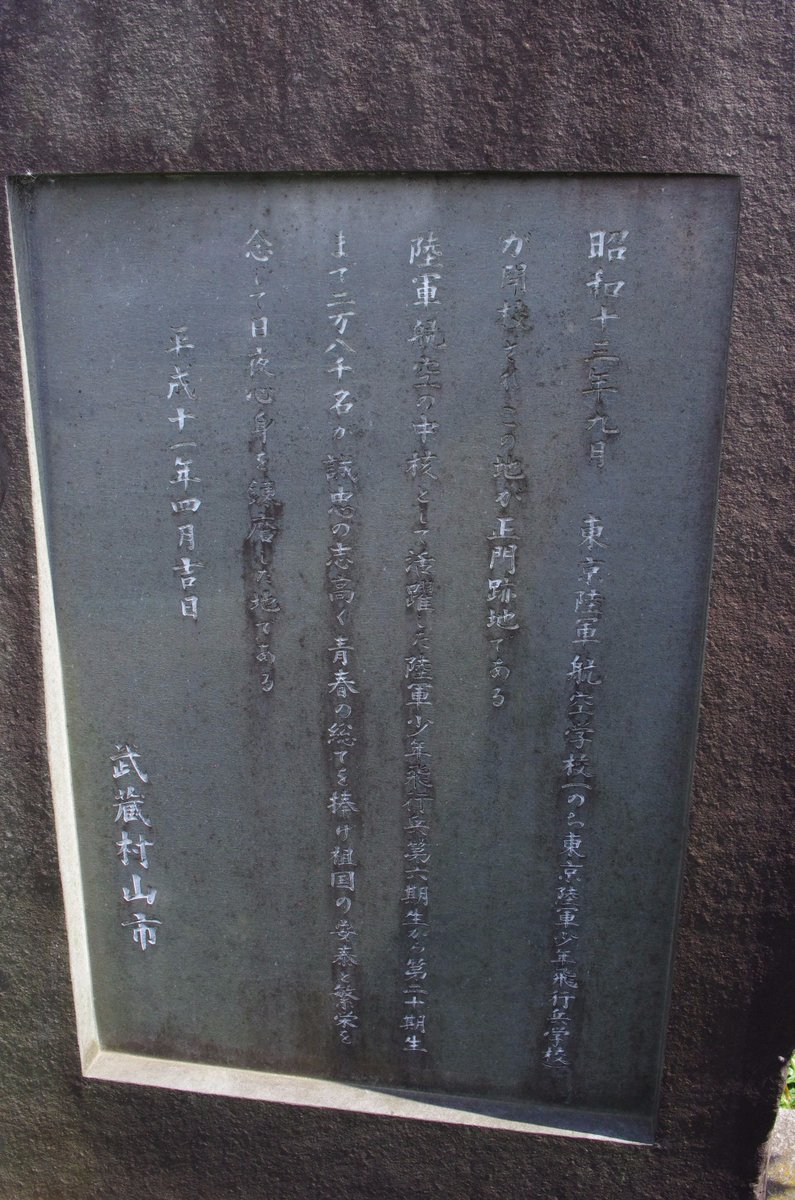 昭和十三年九月　東京陸軍航空学校(のち東京陸軍少年飛行兵学校)
が開校されこの地が正門跡地である
陸軍航空の中核として活躍した陸軍少年飛行兵第六期生から第二十期生
まで二万八千名が誠忠の志高く青春の総てを捧げ祖国の安泰と繁栄を
念じて日夜心身を錬磨した地である
平成十一年四月吉日
武蔵村山市